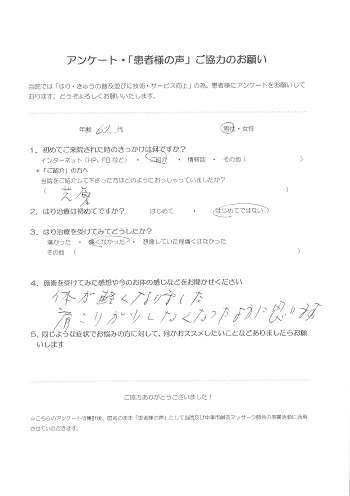 アンケート・「患者様の声」ご協力のお願い
当院では「はり・きゅうの普及並びに技術・サービス向上」の為、患者様にアンケートをお願いして
おります。どうぞよろしくお願いいたします。
年齢 60 代 男性・女性
1．初めてご来院された時のきっかけは何ですか？
インターネット（HP、FBなど） ・ ご紹介 ・ 情報誌 ・ その他（ ）
＊「ご紹介」の方へ
当院をご紹介して下さった方はどのようにおっしゃっていましたか？
（ ）
2．はり治療は初めてですか？ はじめて ・ はじめてではない
3．はり治療を受けてみてどうでしたか？
痛かった ・ 痛くなかった ・ 想像していた程痛くはなかった
その他（ ）
4．施術を受けてみた感想や今のお体の感じなどをお聞かせください
体が軽くなりました
肩こりが少しなくなったように思います
5．同じような症状でお悩みの方に対して、何かおススメしたいことなどありましたらお願
いします
ご協力ありがとうございました！
※こちらのアンケートは集計後、匿名のまま「患者様の声」として当院及び中津市鍼灸マッサージ師会の事業活動に活用
させていただきます。